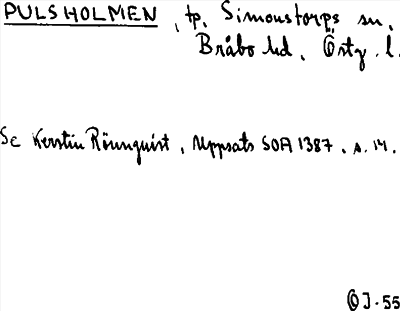 PULSHOLMEN, tp. Simonstorps sn.
Bråbo hd. Östg. l.
Se Kerstin Rönnquist, Uppsats SOA 1387. s. 14.
ÖJ-55